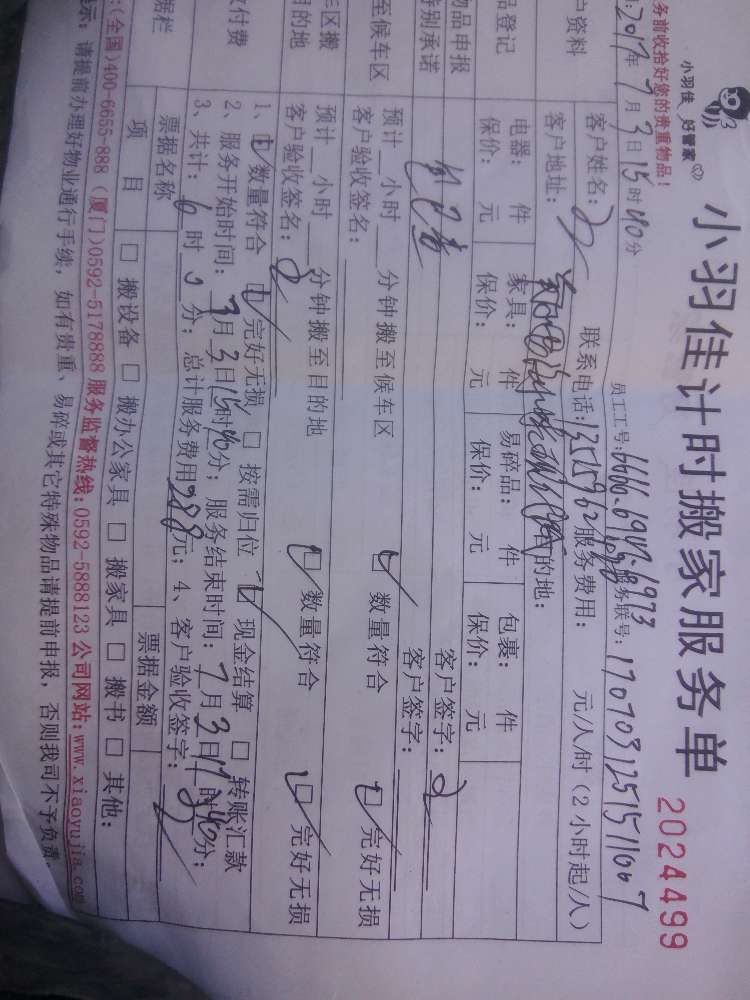 小羽佳 好管家
小羽佳计时搬家服务单
2024499
务前收拾好您的贵重物品！
员工工号:6666.6949.6973 服务联号:170703125151106 7
2017年7月3日15时40分
户资料
客户姓名:
联系电话:
服务费用: 元/人/时（2小时起/人）
客户地址:
的地:
品登记
电器: 件
家具: 件
易碎品: 件
包裹: 件
保价: 元
保价: 元
保价: 元
保价: 元
物品申报
客户签字:
特别承诺
客户签字:
至候车区
预计__小时__分钟搬至候车区
数量符合
完好无损
客户验收签名:
车区搬
目的地
预计__小时__分钟搬至目的地
数量符合
完好无损
客户验收签名:
付费
1、数量符合 完好无损 按需归位 现金结算 转账汇款
2、服务开始时间:7月3日15时40分; 服务结束时间:7月3日17时40分;
3、共计:6时0分; 总计服务费用288元; 4、客户验收签字:
据栏
票据名称
票据金额
项 目
搬设备 搬办公家具 搬家具 搬书 其他:
:(全国)400-6655-888（厦门)0592-5178888 服务监督热线:0592-5888123 公司网站:www.xiaoyujia.com
示: 请提前办理好物业通行手续, 如有贵重、易碎或其它特殊物品请提前申报, 否则我司不予负责。